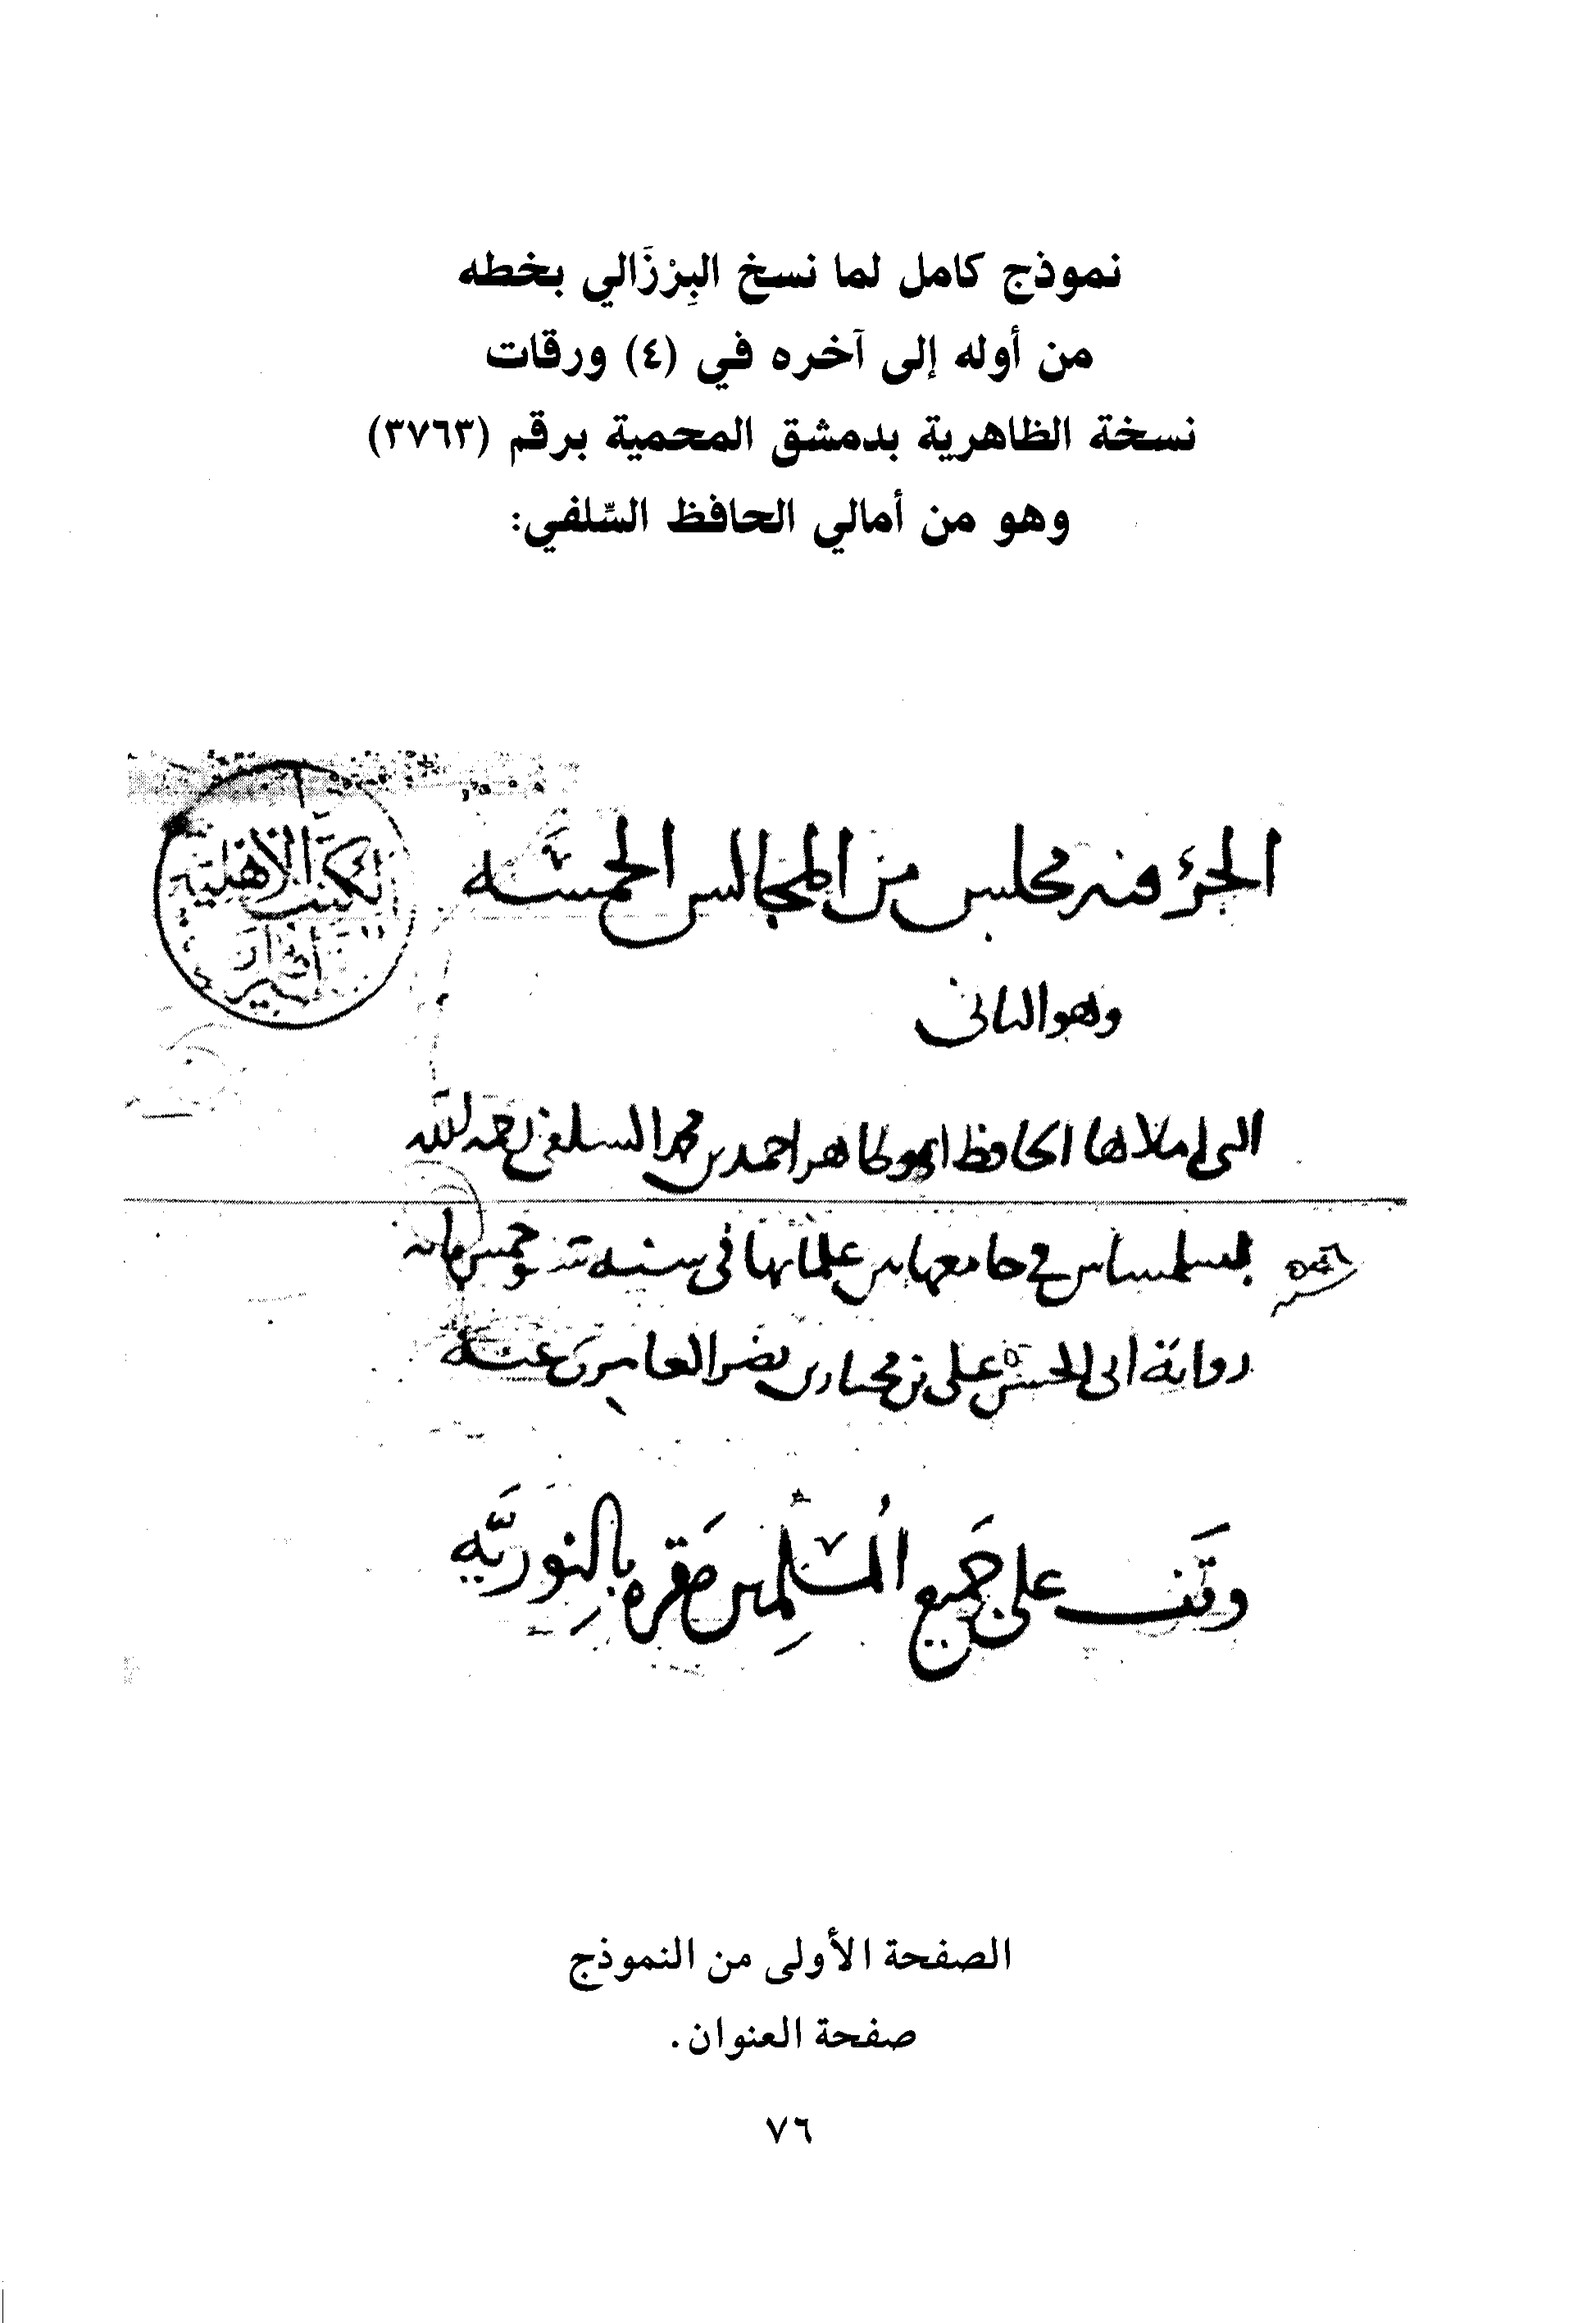 نموذج كامل لما نسخ البِرْزَالي بخطه
من أوله إلى آخره في (٤) ورقات
نسخة الظاهرية بدمشق المحمية برقم (٣٧٦٣)
وهو من أمالي الحافظ السِّلفي:
الجزؤ فيه مجلس من المجالس الخمسه
وهو الثانى
التى املاها الحافظ ابو طاهر احمد بن محمد السلفى رحمه الله
بسلماس فى جامعها بين علمائها فى سنه ست وخمس مائه
٥٠٦
سنة
رواية ابى الحسن على بن مختار بن نصر العامرى عنه
وقف على جَميع المُسلِمين مقره بالنِوريَّه
الصفحة الأولى من النموذج
صفحة العنوان.
٧٦